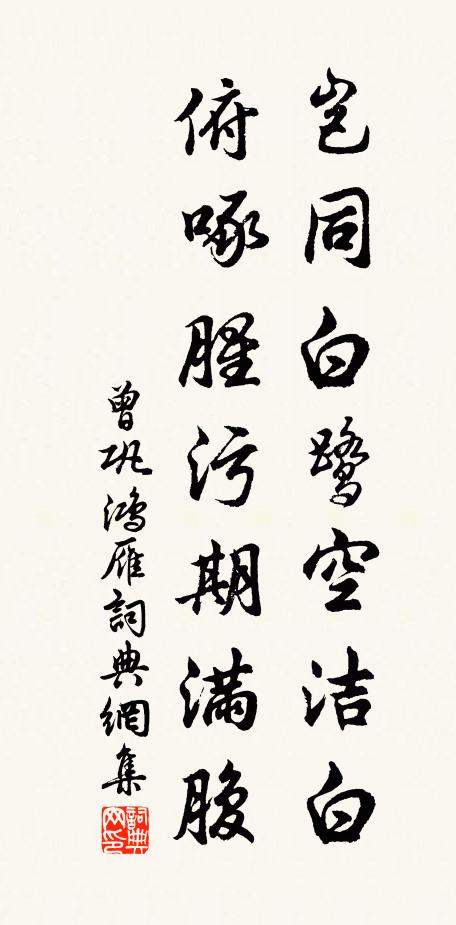 岂同白鹭空洁白
俯啄腥污期满腹
曾巩鸿雁詞典網集
詞典
网印